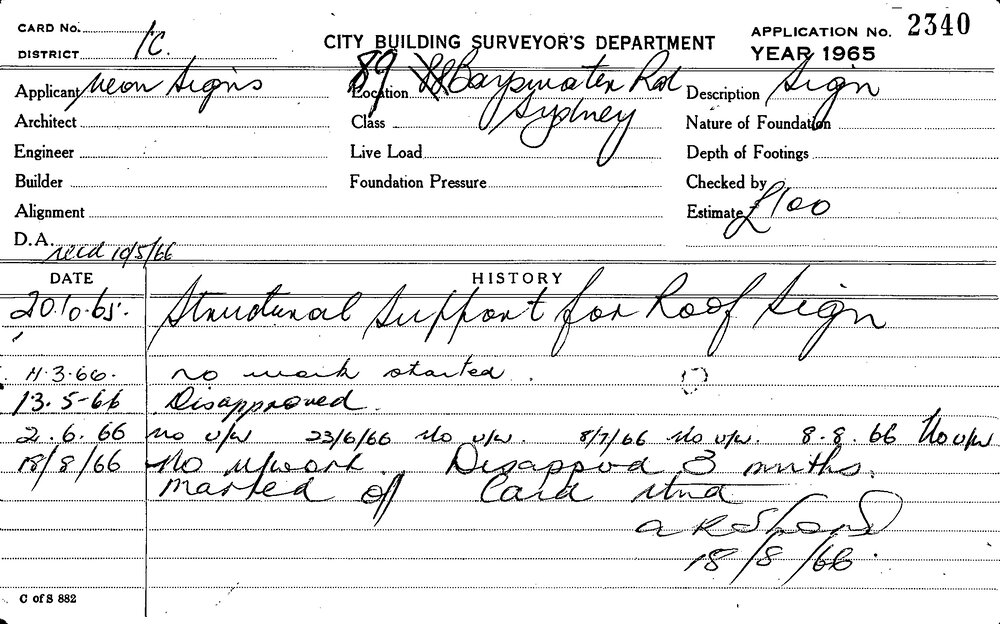 CARD No. APPLICATION No. 2340
DISTRICT 1C. CITY BUILDING SURVEYOR'S DEPARTMENT YEAR 1965
Applicant Neon Signs Location 89 Bayswater Rd Description Sign
Architect Class Sydney Nature of Foundation
Engineer Live Load Depth of Footings
Builder Foundation Pressure Checked by
Alignment Estimate £100
D.A. recd 10/5/66
DATE HISTORY
20.10.65. Structural Support for Roof Sign
11.3.66. no work started.
13.5-66 Disapproved.
2.6.66 no u/w 23/6/66 No u/w. 8/7/66 No u/w. 8.8.66 No u/w
18/8/66 No u/work. Disappvd 3 mnths.
Marked off Card
18/8/66.
C of S 882